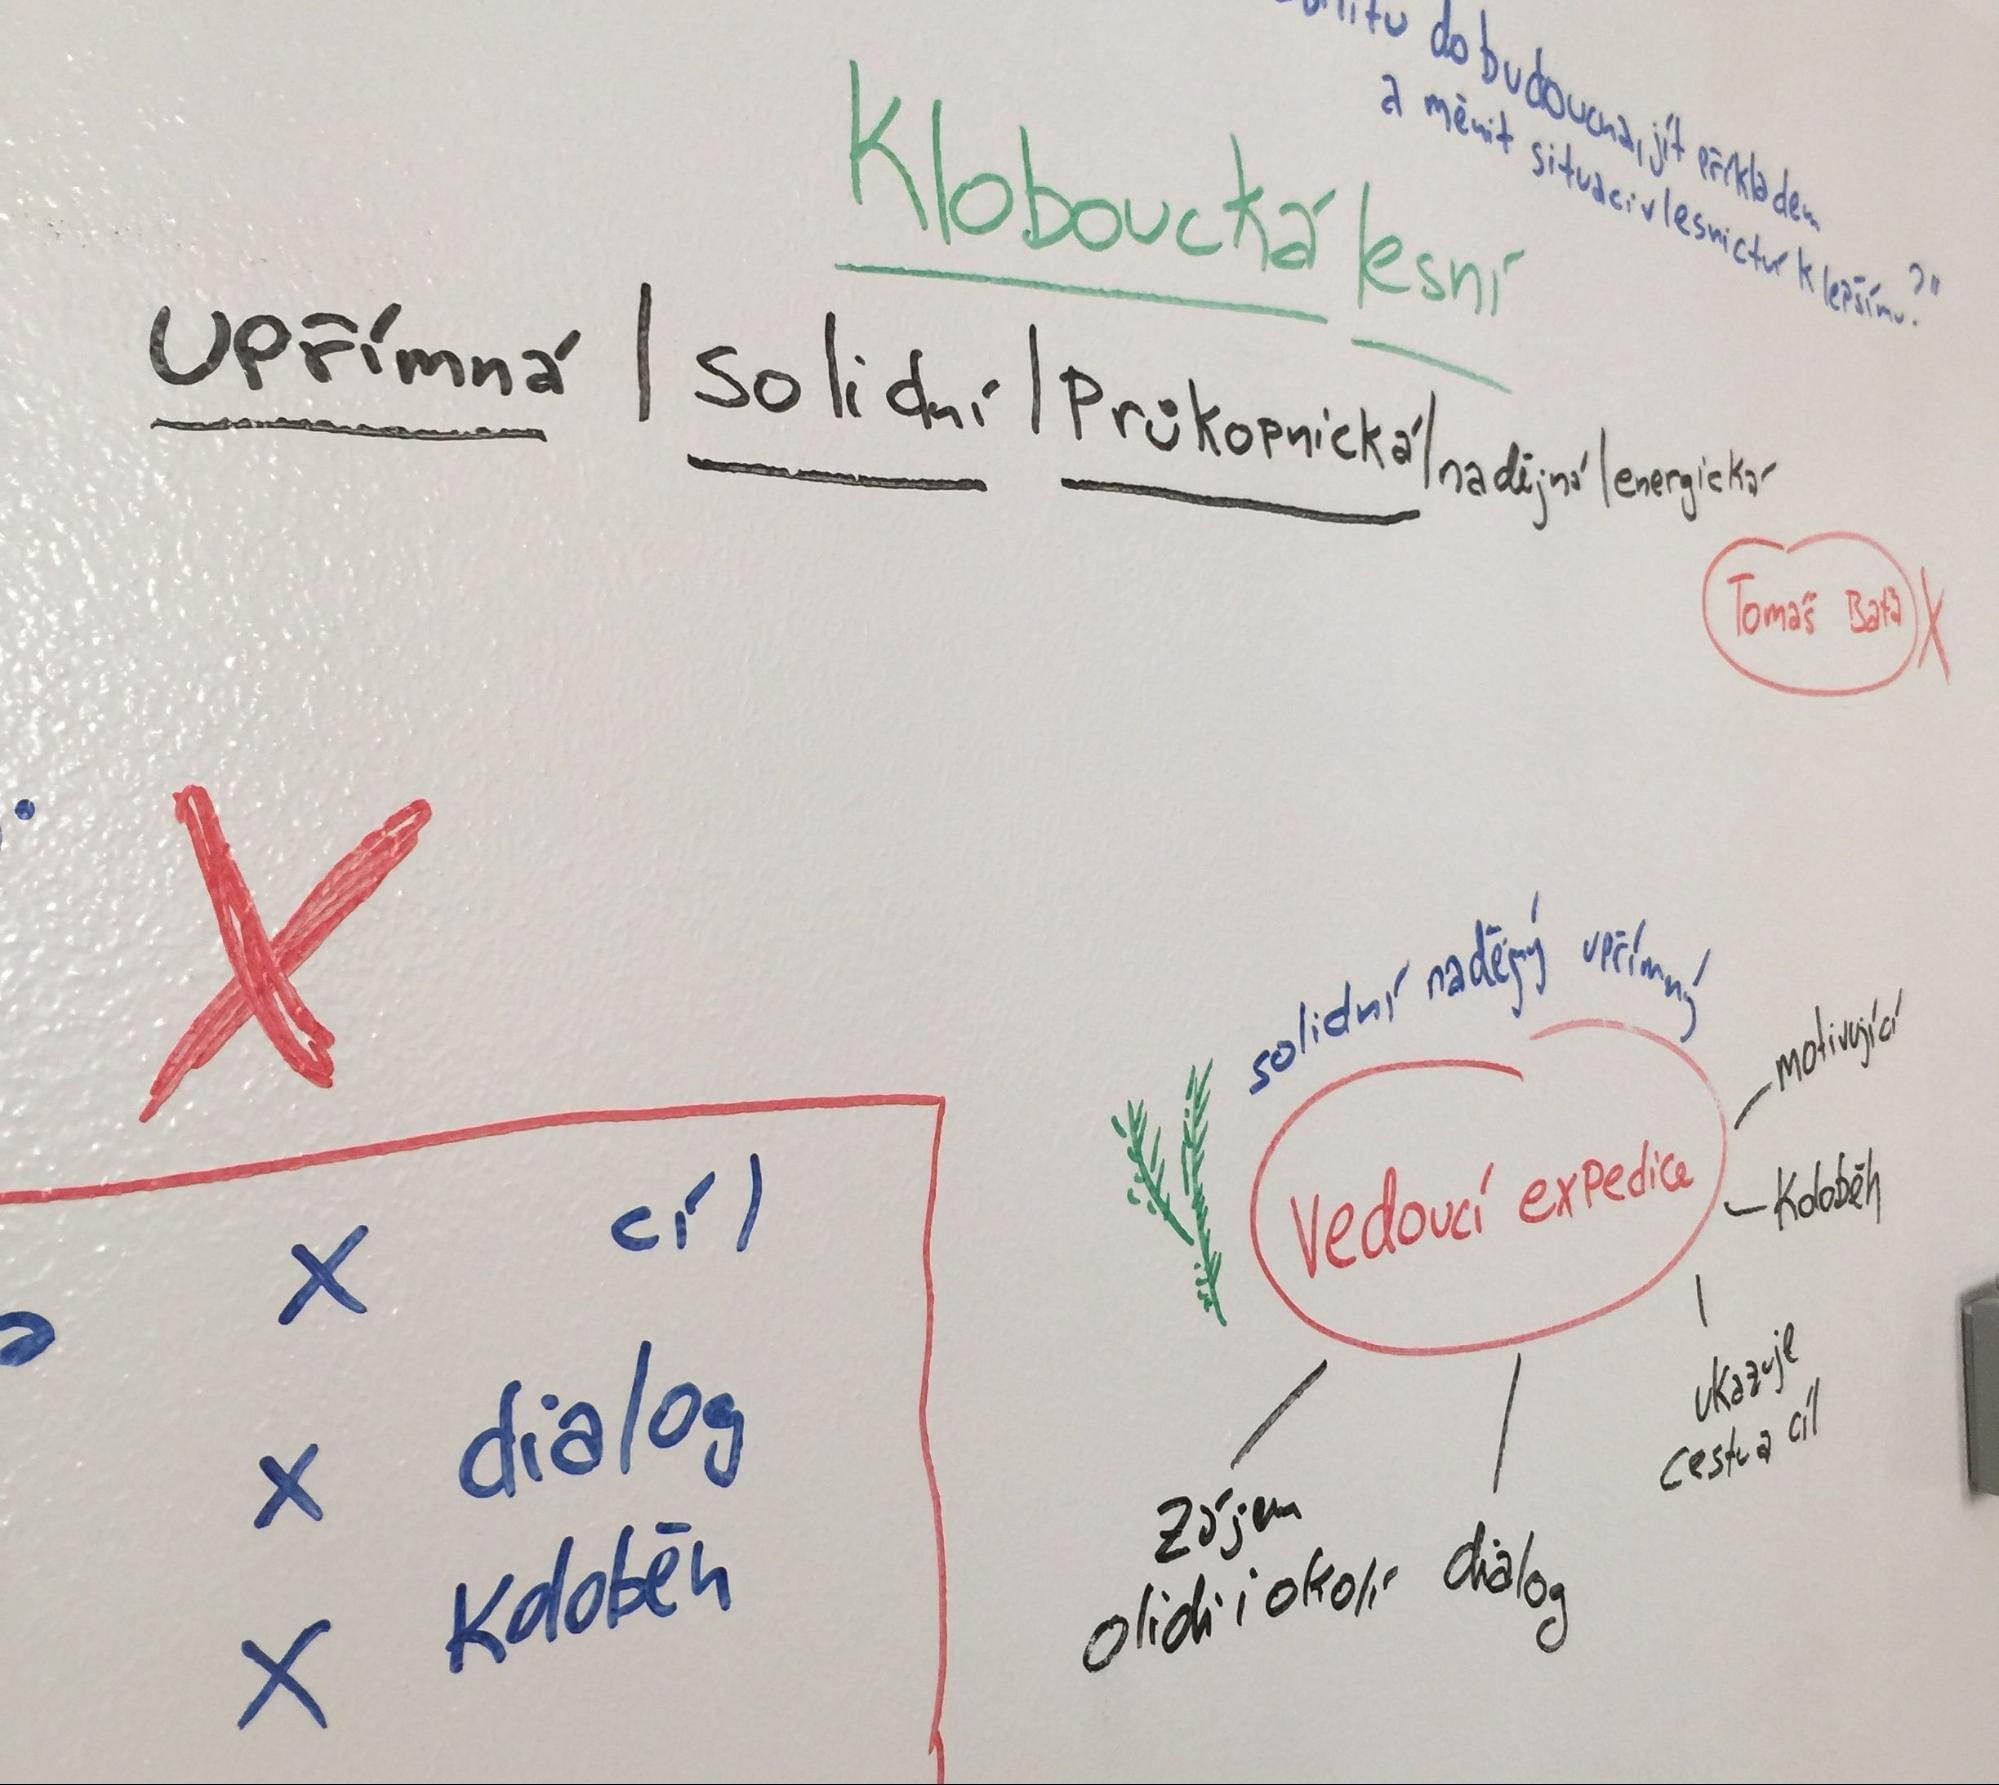 do budoucna, jít příkladem
a měnit situaci v lesnictví k lepšímu?"
Kloboucká lesní
Upřímná / solidní / Průkopnická / nadějná / energická
Tomáš Baťa X
X
solidní nadějný upřímný
motivující
Vedoucí expedice
kdoběh
ukazuje
cestu a cíl
zájem
o lidi i okolí
dialog
x cíl
x dialog
x kdoběh